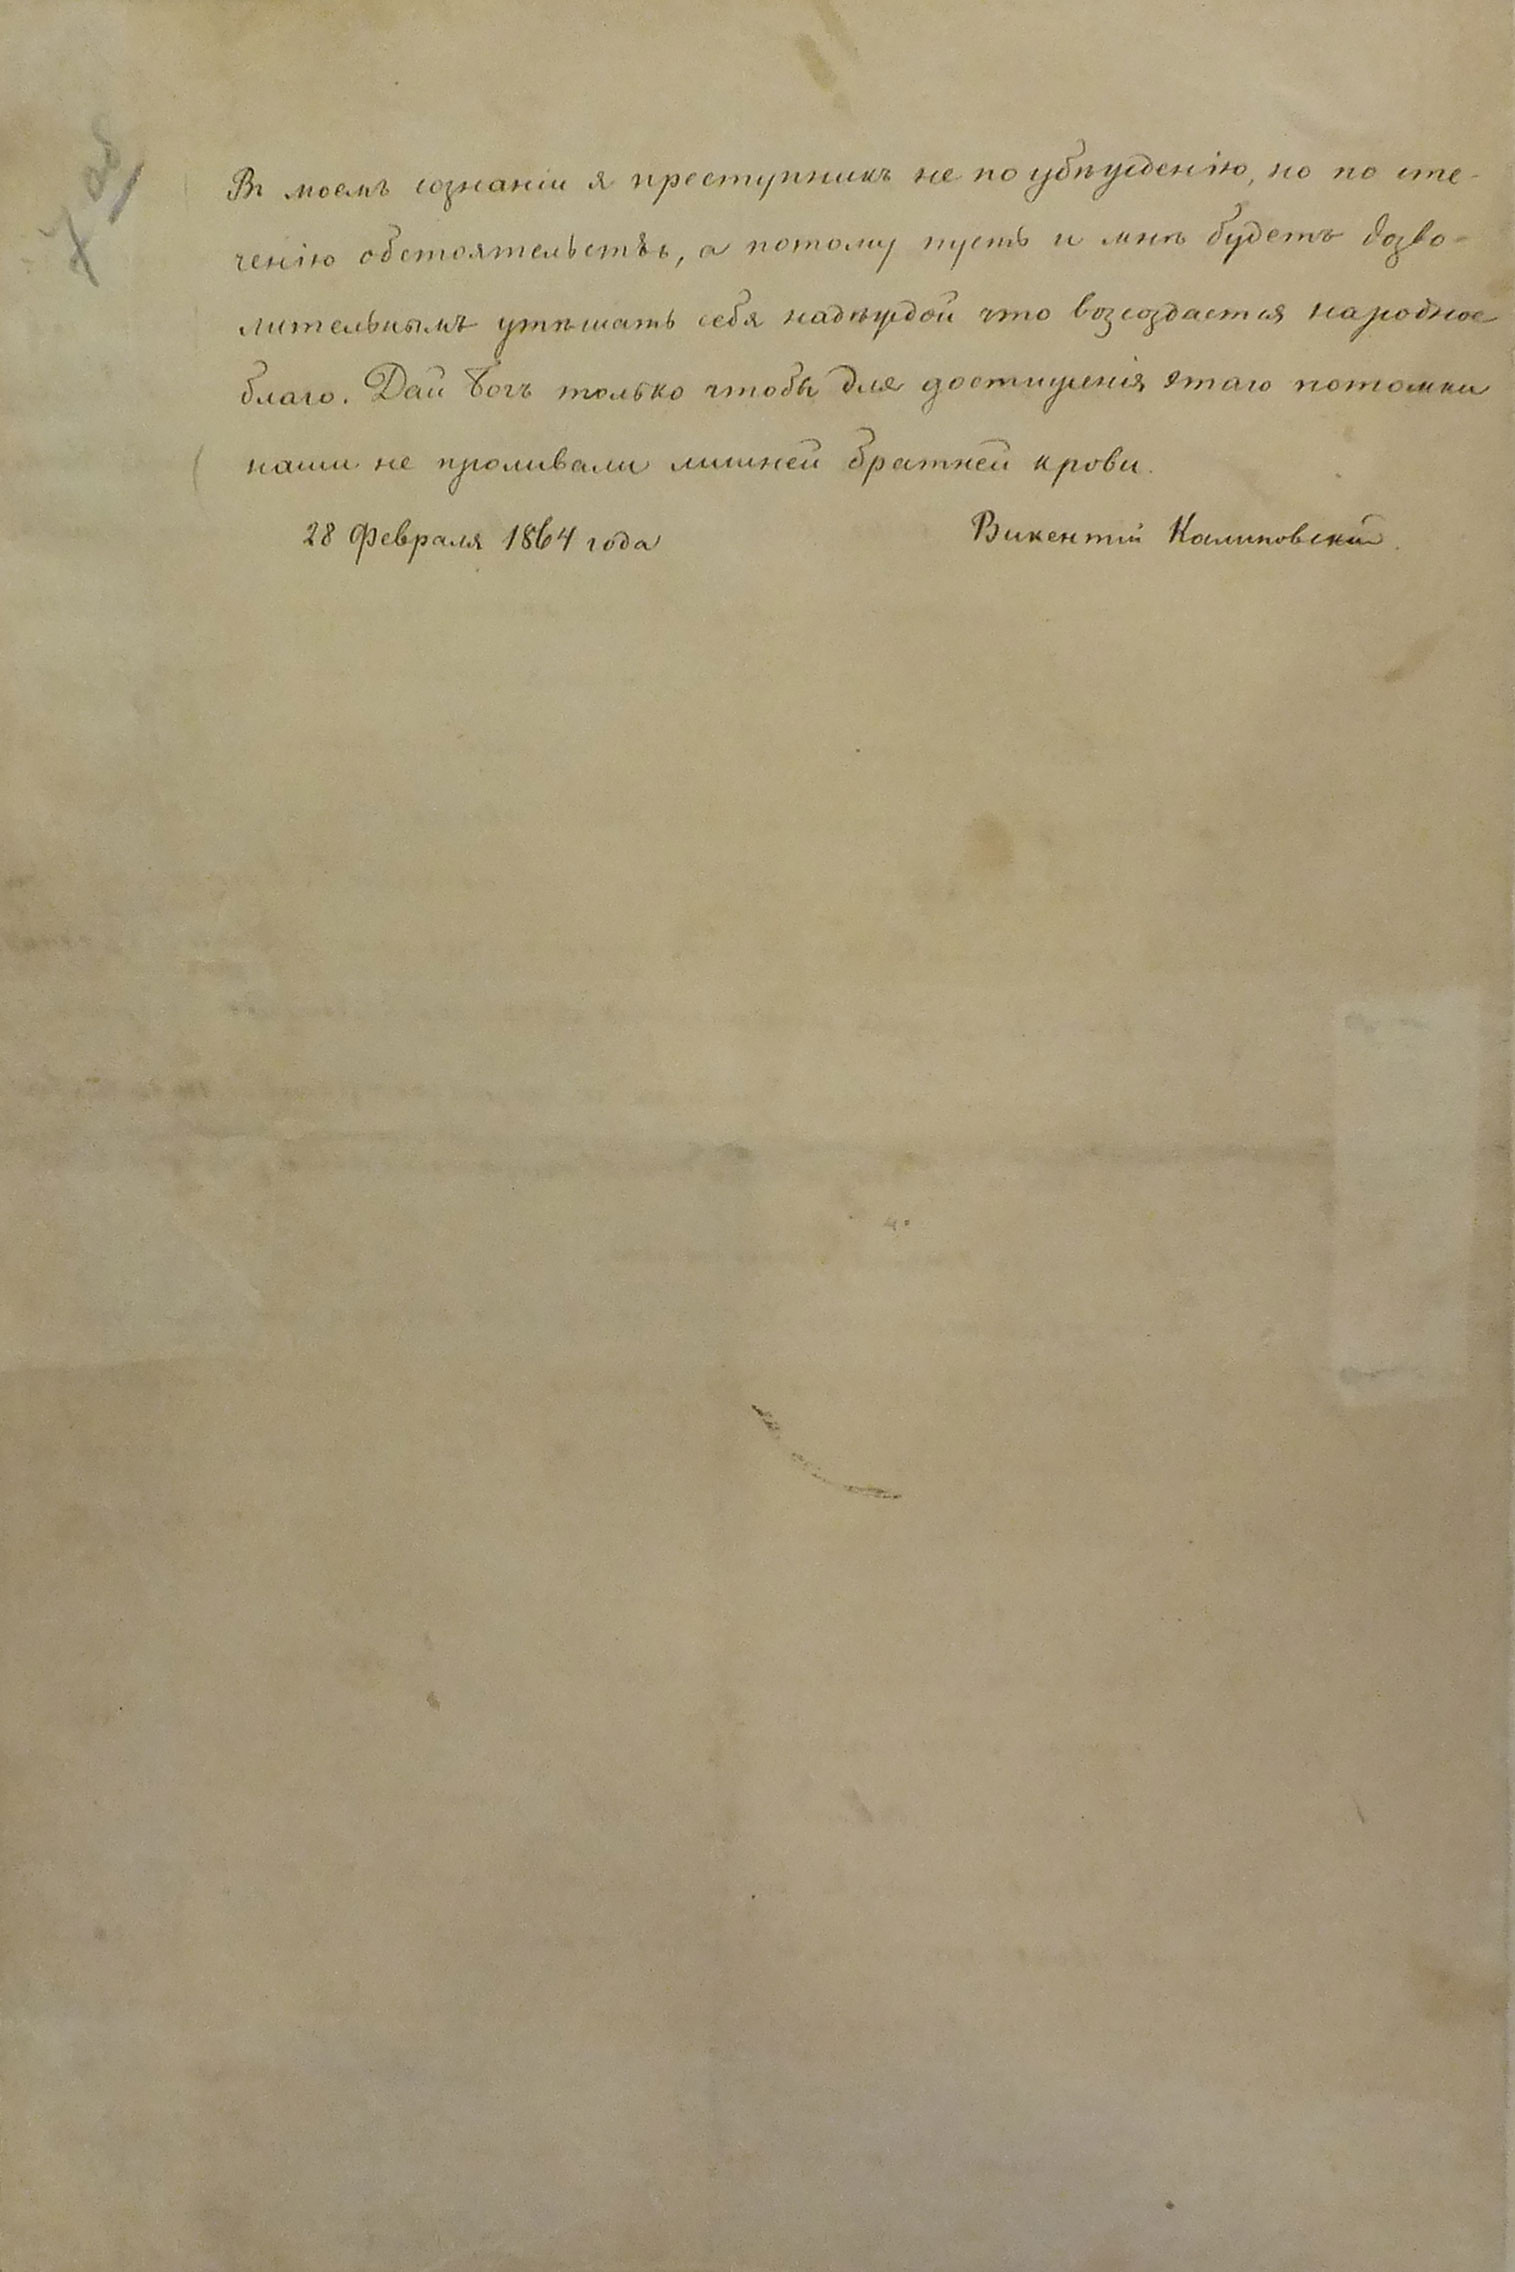 7 об
Въ моемъ сознаніи я преступникъ не по убѣжденію, но по сте-
ченію обстоятельствъ, а потому пусть и мнѣ будетъ дозво-
лительнымъ утѣшать себя надѣждой что возсоздастся народное
благо. Дай Богъ только чтобы для достиженія этаго потомки
наши не проливали лишней братней крови.
28 Февраля 1864 года Викентій Калиновскій.